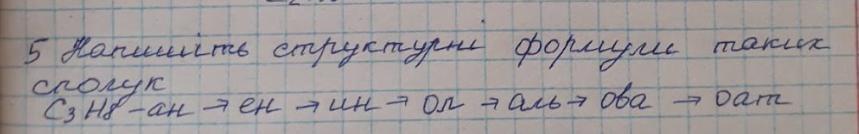 5 Напишіть структурні формули таких
сполук
C3H8 -ан → ен → ин → ол → аль → ова → оат